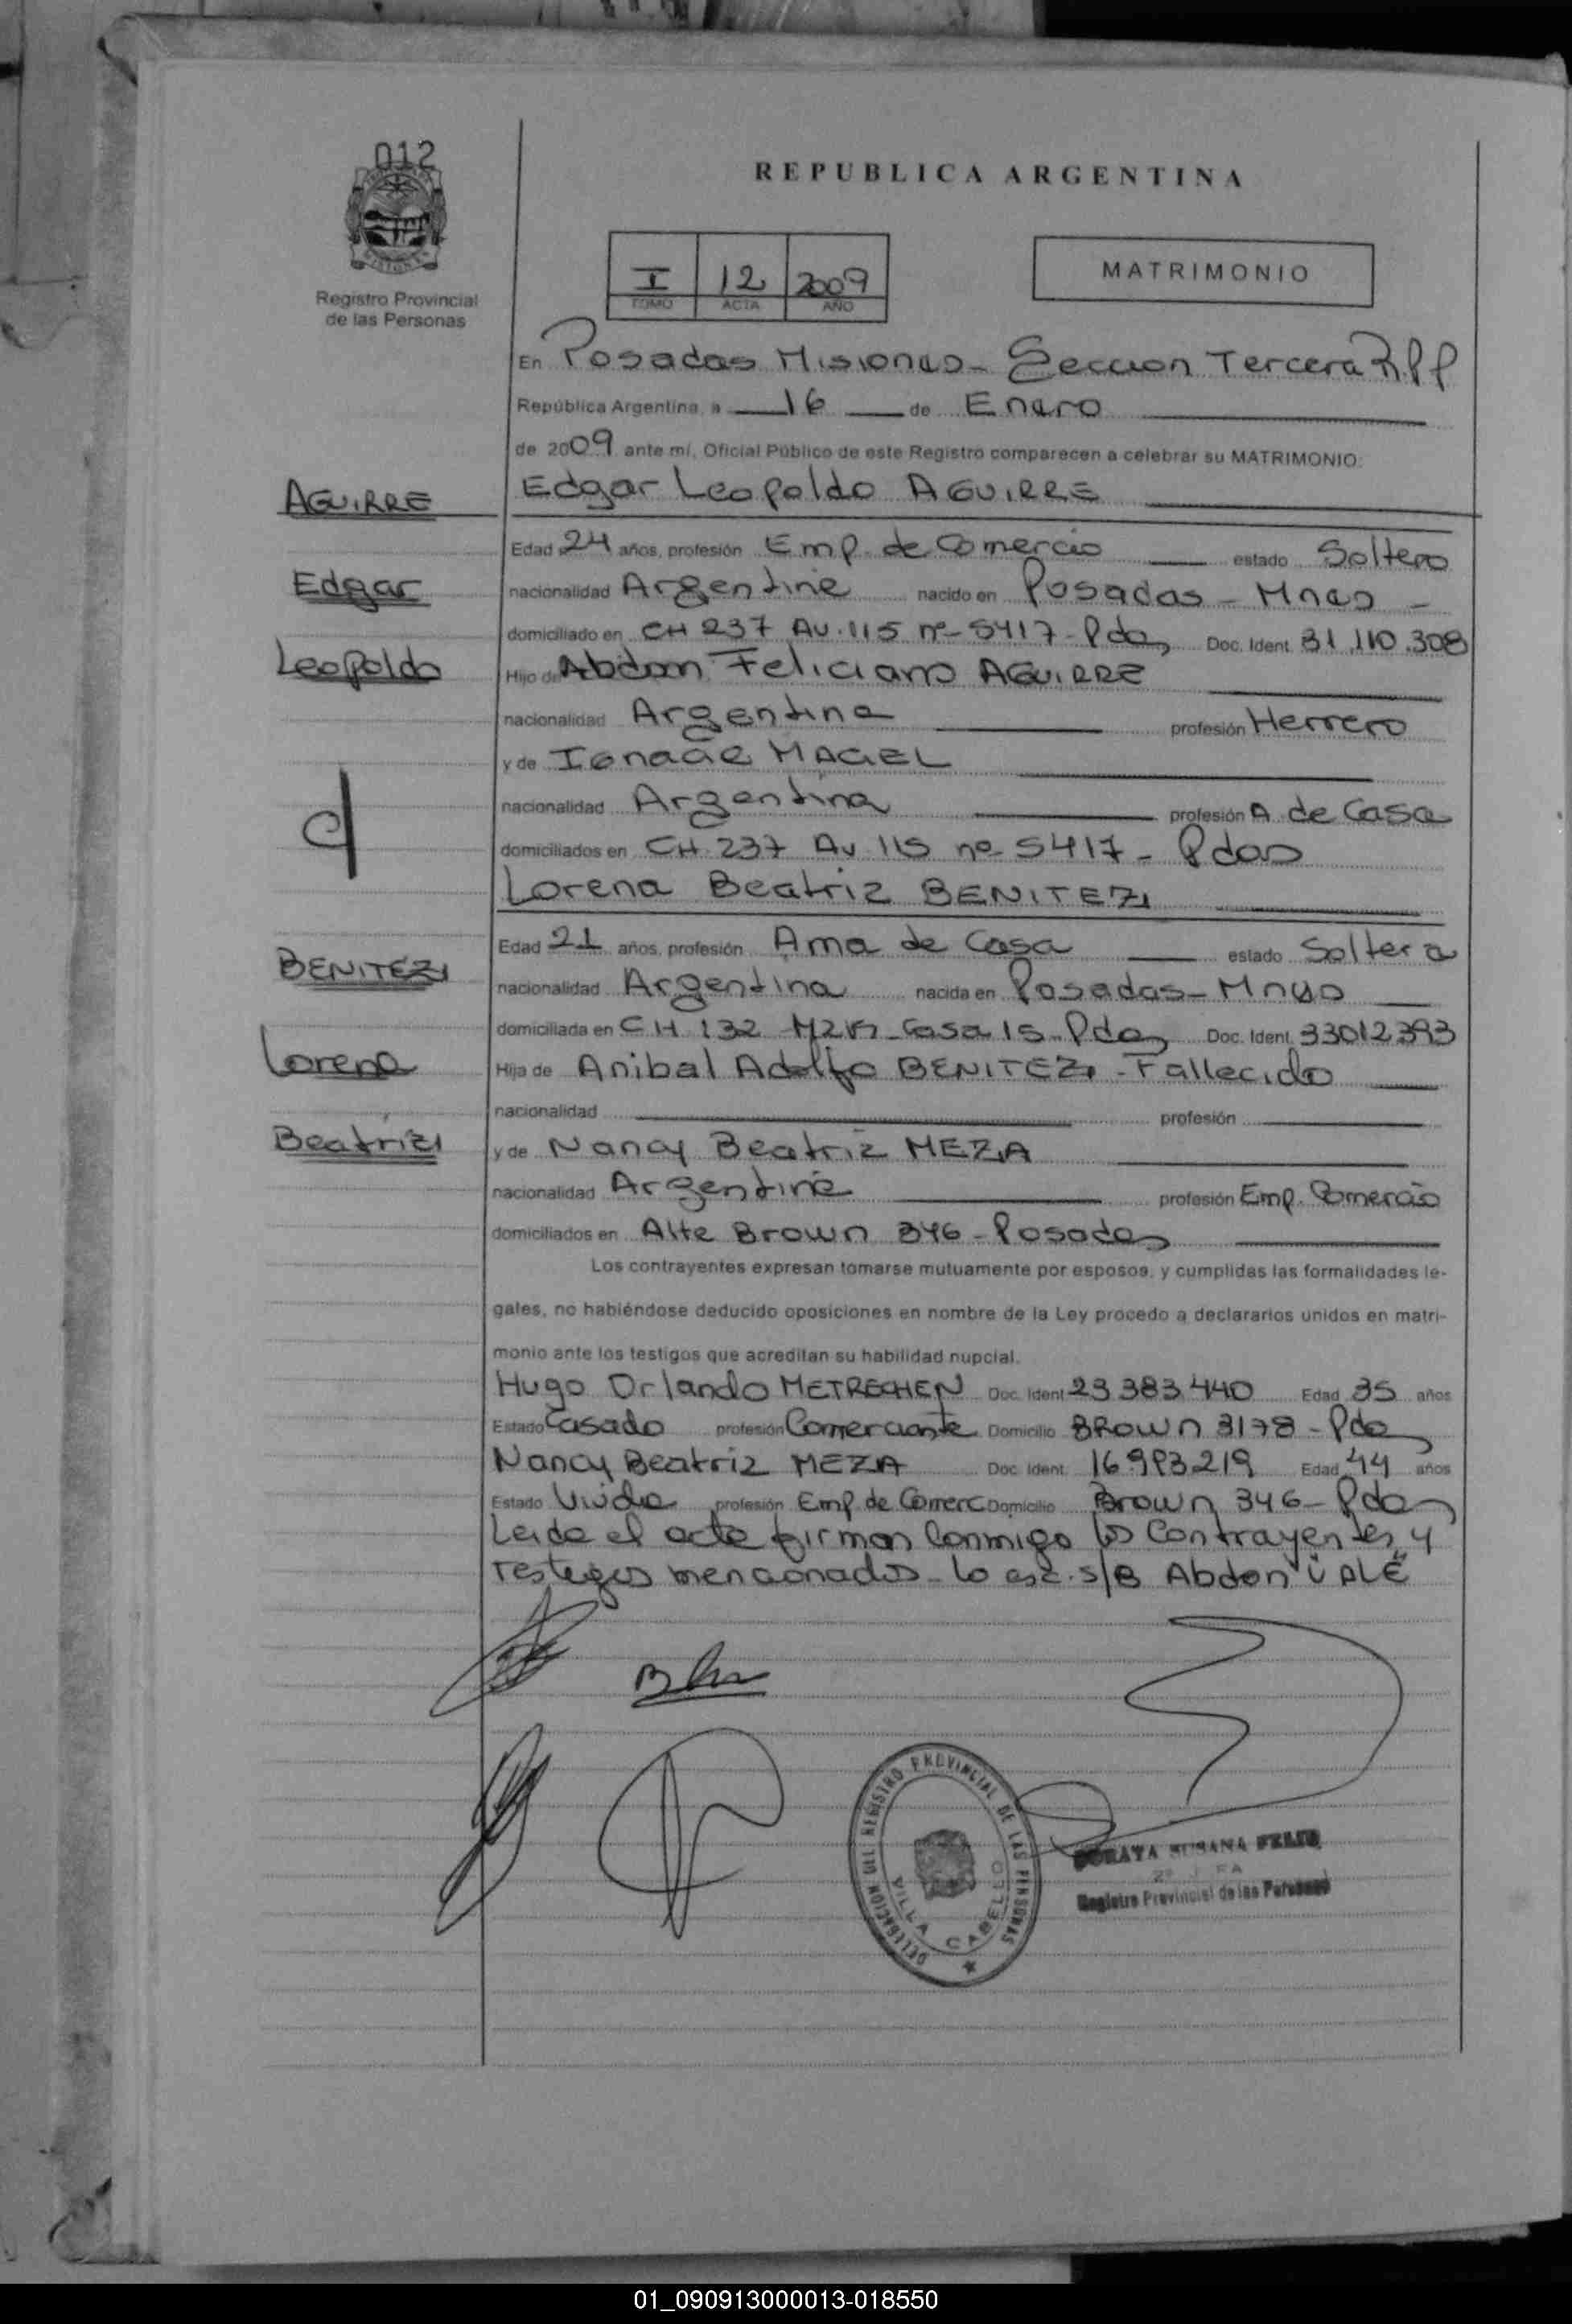 012
REPUBLICA ARGENTINA
Registro Provincial
de las Personas
I 12 2009
TOMO ACTA AÑO
MATRIMONIO
En Posadas Misiones - Seccion Tercera RPP
República Argentina, a 16 de Enero
de 2009 ante mí, Oficial Público de este Registro comparecen a celebrar su MATRIMONIO:
AGUIRRE
Edgar Leopoldo AGUIRRE
Edad 24 años, profesión Emp. de Comercio estado Soltero
Edgar
nacionalidad Argentina nacido en Posadas - Mnes -
domiciliado en CH 237 AV. 115 nº 5417 - Pdas Doc. Ident. 31.110.308
Leopoldo
Hijo de Abdon Feliciano AGUIRRE
nacionalidad Argentina profesión Herrero
y de Ignacia MACIEL
nacionalidad Argentina profesión A. de Casa
domiciliados en CH 237 Av 115 nº 5417 - Pdas
Lorena Beatriz BENITEZ
Edad 21 años, profesión Ama de Casa estado Soltera
BENITEZ
nacionalidad Argentina nacida en Posadas - Mnes
domiciliada en CH 132 Casa 15 - Pdas Doc. Ident. 33012393
Lorena
Hija de Anibal Adolfo BENITEZ - Fallecido
nacionalidad profesión
Beatriz
y de Nancy Beatriz MEZA
nacionalidad Argentina profesión Emp. Comercio
domiciliados en Alte Brown 346 - Posadas
Los contrayentes expresan tomarse mutuamente por esposos, y cumplidas las formalidades le-
gales, no habiéndose deducido oposiciones en nombre de la Ley procedo a declararlos unidos en matri-
monio ante los testigos que acreditan su habilidad nupcial.
Hugo Orlando METRECHEN Doc. Ident. 23.383.440 Edad 35 años
Estado Casado profesión Comerciante Domicilio BROWN 3178 - Pdas
Nancy Beatriz MEZA Doc. Ident. 16.983.219 Edad 44 años
Estado Viuda profesión Emp. de Comerc Domicilio Brown 346 - Pdas
Leida el acta firman conmigo los Contrayentes y
testigos mencionados - lo esc. s/B Abdon "VALE"
DELEGACION DEL REGISTRO PROVINCIAL DE LAS PERSONAS
VILLA CABELLO
SORAYA SUSANA
Registro Provincial de las Personas
01_090913000013-018550